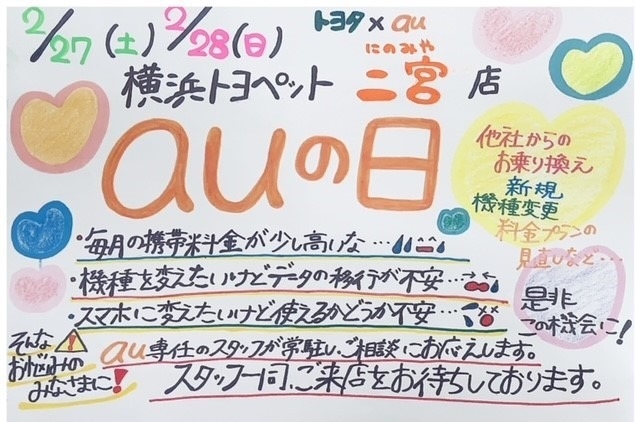 2/27(土) 2/28(日)
トヨタ×au
にのみや
横浜トヨペット 二宮 店
auの日
他社からの
お乗り換え
新規
機種変更
料金プランの
見直しなど…
・毎月の携帯料金が少し高いな…
・機種を変えたいけどデータの移行が不安…
・スマホに変えたいけど使えるかどうか不安…
是非
この機会に!
そんな
お悩みの
みなさまに!
au専任のスタッフが常駐し、ご相談にお応えします。
スタッフ一同、ご来店をお待ちしております。